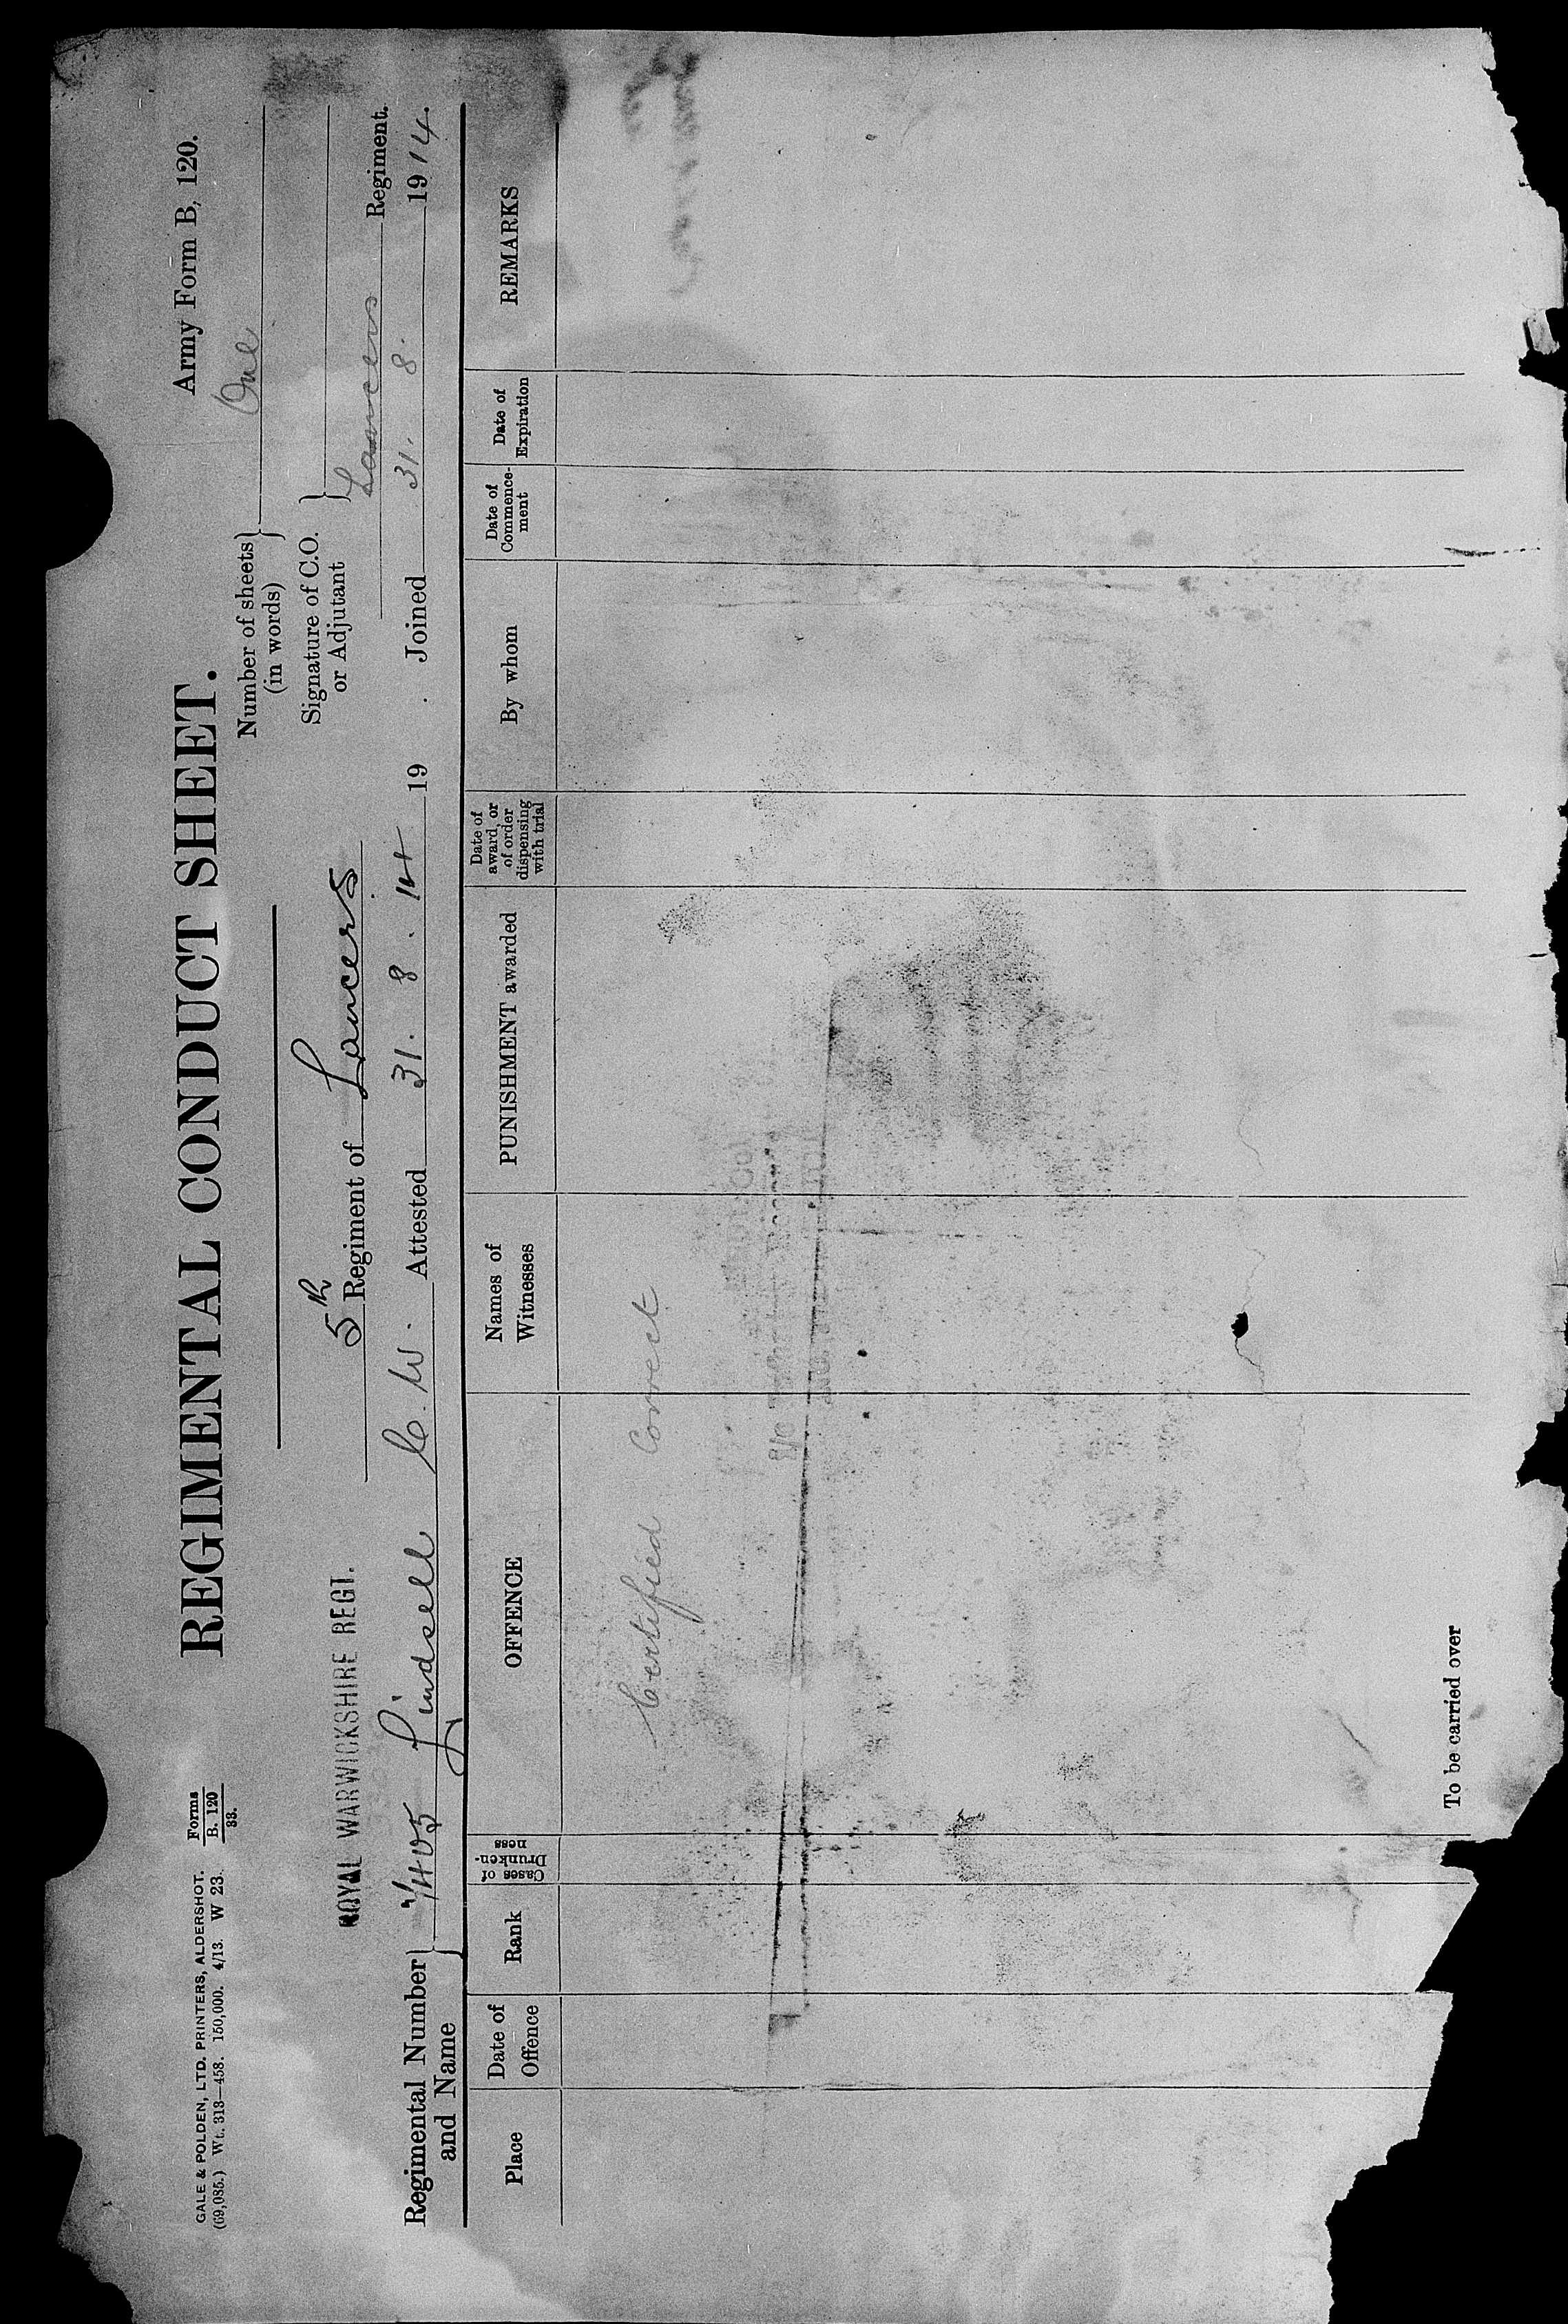 GALE & POLDEN, LTD. PRINTERS, ALDERSHOT.
(69,085.) Wt. 313—458. 150,000. 4/13. W 23.
Forms
B. 120
33.
Army Form B, 120.
REGIMENTAL CONDUCT SHEET.
Number of sheets (in words) } One
Signature of C.O. or Adjutant }
ROYAL WARWICKSHIRE REGT.
5th Regiment of Lancers
Lancers Regiment.
Regimental Number and Name } Lindsell C. W. Attested 31. 8. 14 19 . Joined 31. 8. 1914.
Place
Date of Offence
Rank
Cases of Drunken-ness
OFFENCE
Names of Witnesses
PUNISHMENT awarded
Date of award, or of order dispensing with trial
By whom
Date of Commence-ment
Date of Expiration
REMARKS
Certified Correct
To be carried over